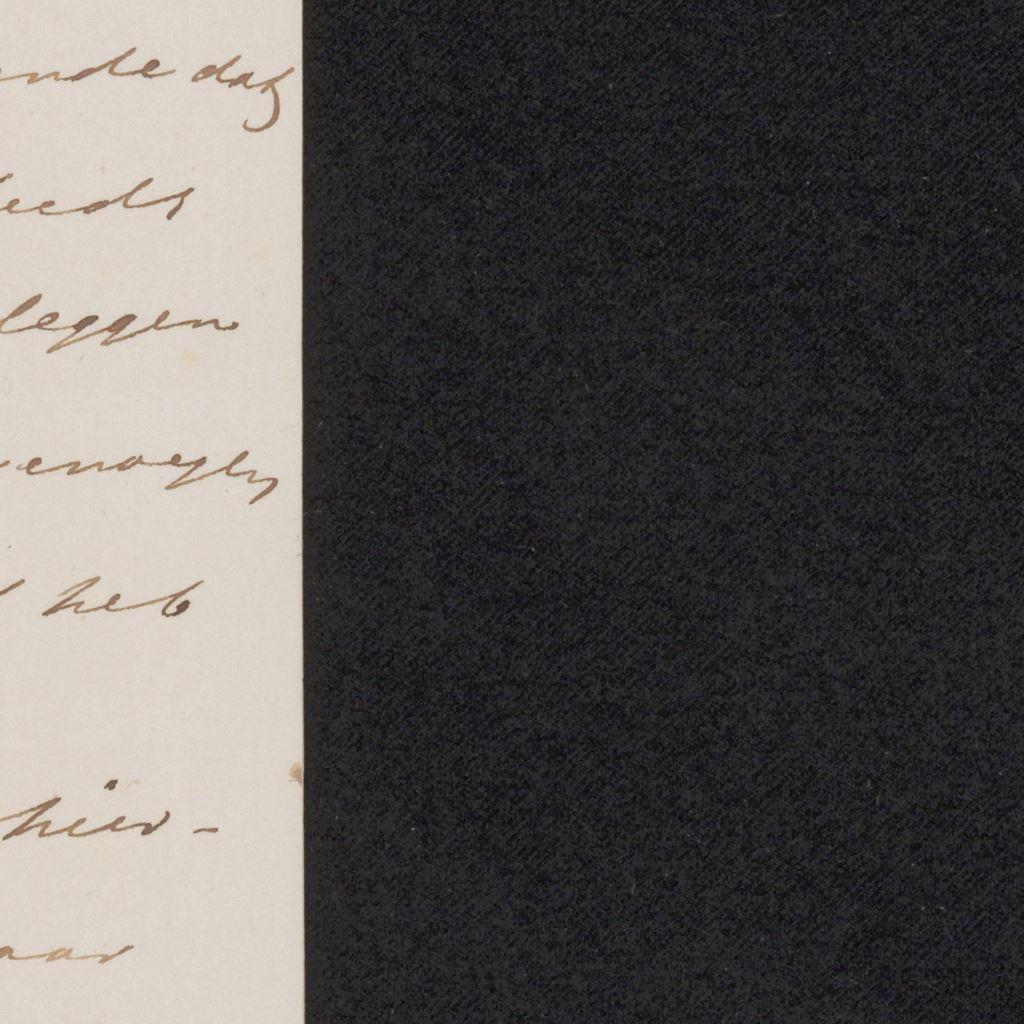 nde dat
eeds
leggen
enoegen
heb
hier-
aar